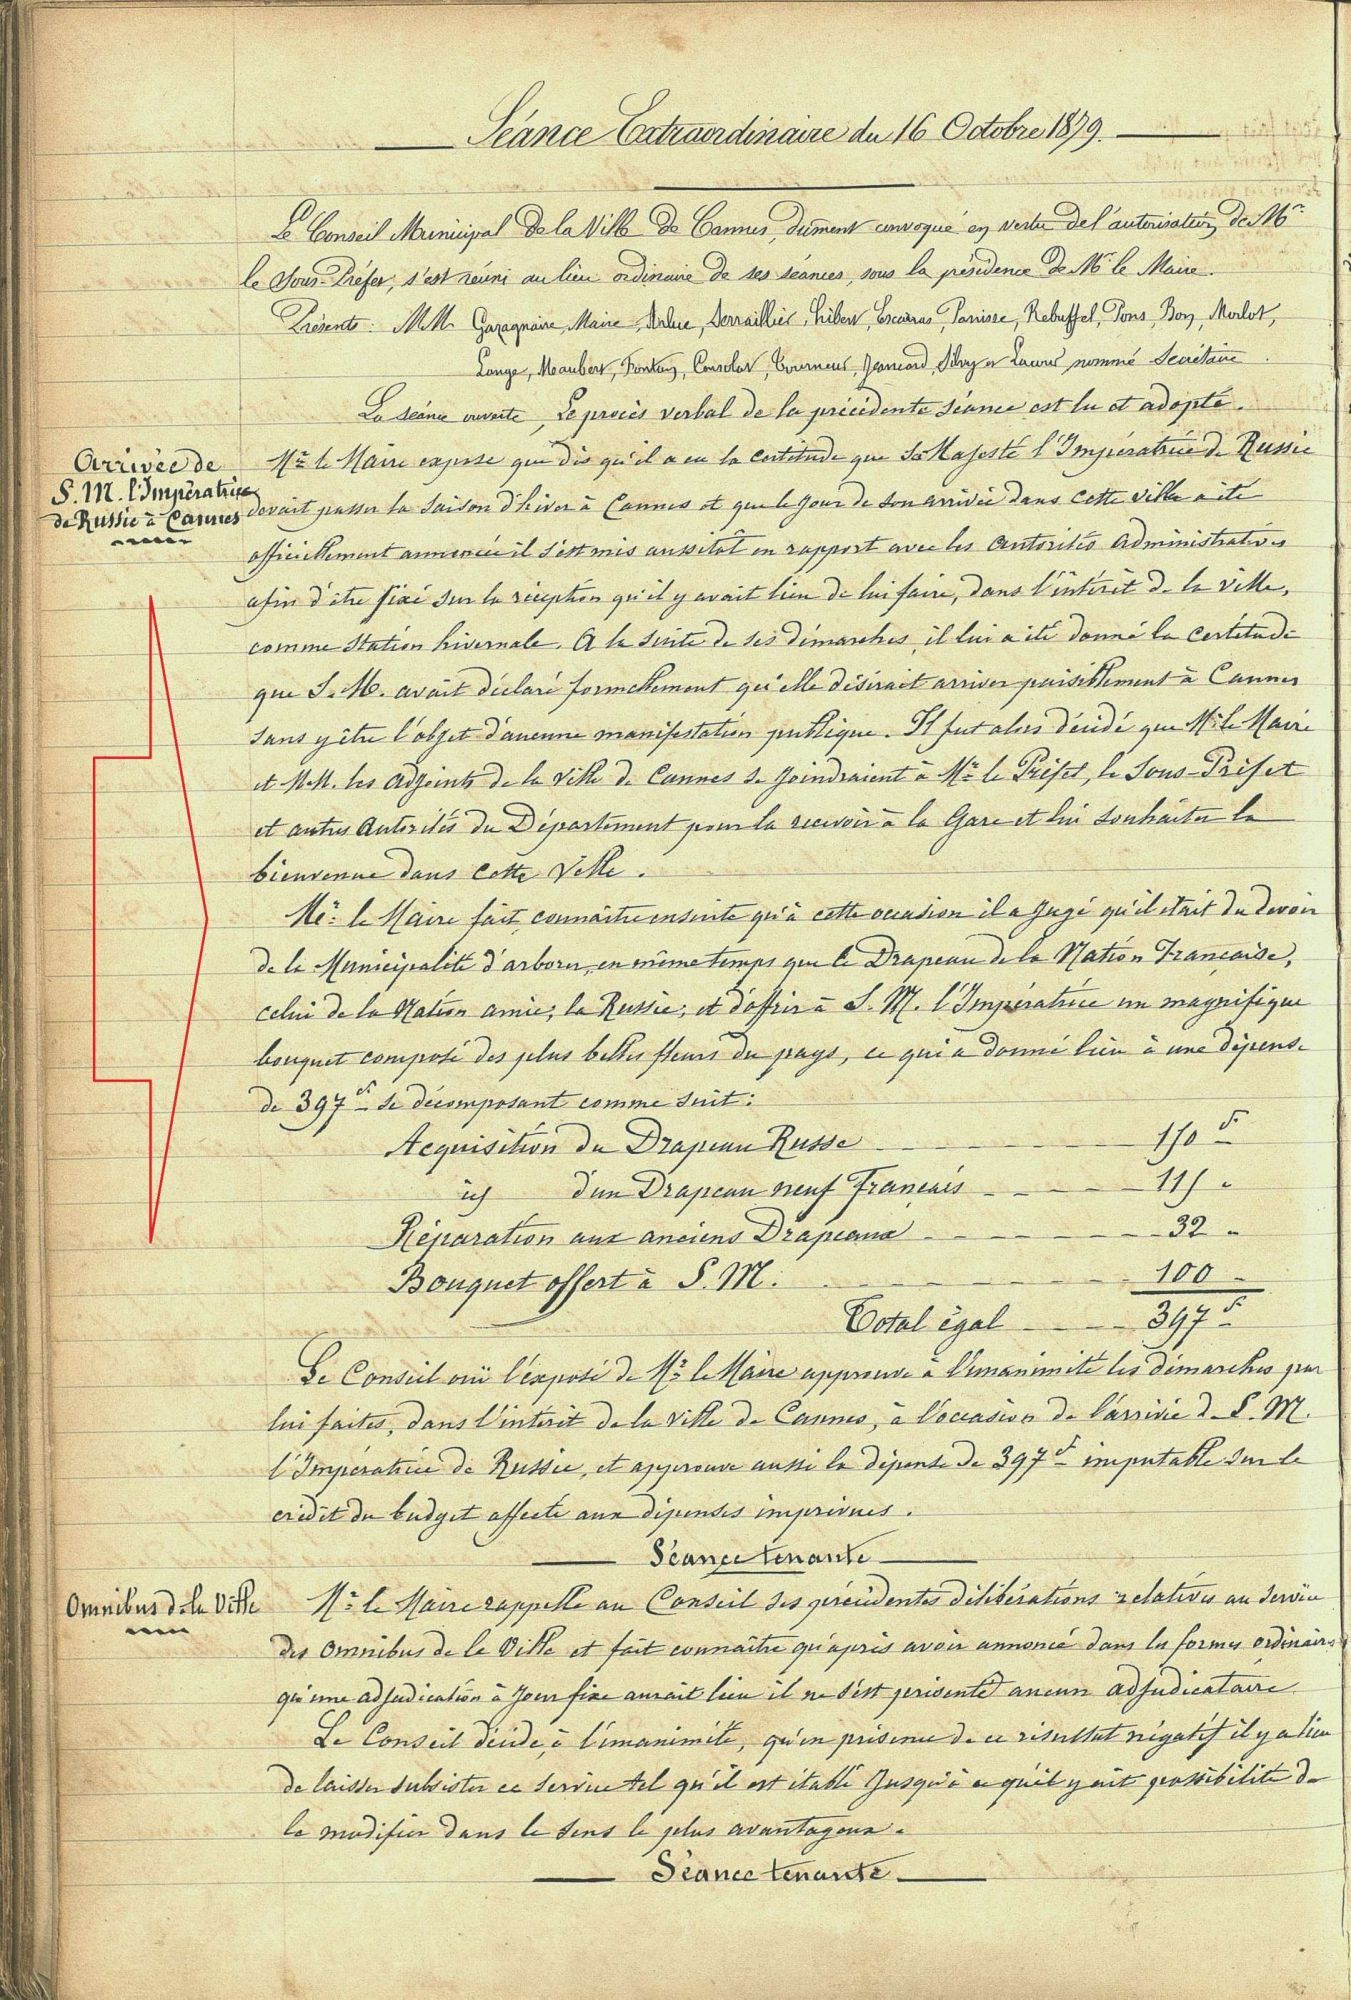 Séance Extraordinaire du 16 Octobre 1879.
Le Conseil Municipal de la Ville de Cannes, dûment convoqué en vertu de l'autorisation de Mr
le Sous-Préfet, s'est réuni au lieu ordinaire de ses séances, sous la présidence de Mr le Maire.
Présents: MM. Gazagnaire, Maire, Arluc, Serraillier, Hibert, Escarras, Panisse, Rebuffel, Pons, Bon, Morlot,
Lange, Maubert, Consolat, Tourneur, Jeancard, Silvy et nommé Secrétaire.
La séance ouverte, Le procès verbal de la précédente séance est lu et adopté.
Arrivée de
S. M. l'Impératrice
de Russie à Cannes
Mr le Maire expose que dès qu'il a eu la certitude que Sa Majesté l'Impératrice de Russie
devait passer la saison d'hiver à Cannes et que le jour de son arrivée dans cette ville a été
officiellement annoncée il s'est mis aussitôt en rapport avec les autorités administratives
afin d'être fixé sur la réception qu'il y avait lieu de lui faire, dans l'intérêt de la ville,
comme station hivernale. A la suite de ses démarches, il lui a été donné la certitude
que S. M. avait déclaré formellement qu'elle désirait arriver paisiblement à Cannes
sans y être l'objet d'aucune manifestation publique. Il fut alors décidé que Mr le Maire
et M.M. les adjoints de la Ville de Cannes se joindraient à Mr le Préfet, le Sous-Préfet
et autres autorités du Département pour la recevoir à la Gare et lui souhaiter la
bienvenue dans cette Ville.
Mr le Maire fait connaître ensuite qu'à cette occasion il a jugé qu'il était du devoir
de la Municipalité d'arborer, en même temps que le Drapeau de la Nation Française,
celui de la Nation amie, la Russie, et d'offrir à S. M. l'Impératrice un magnifique
bouquet composé des plus belles fleurs du pays, ce qui a donné lieu à une dépense
de 397f se décomposant comme suit:
Acquisition du Drapeau Russe 150 f
id d'un Drapeau neuf Français 115 "
Réparation aux anciens Drapeaux 32 "
Bouquet offert à S. M. 100 "
Total égal 397 f
Le Conseil ouï l'exposé de Mr le Maire approuve à l'unanimité les démarches par
lui faites, dans l'intérêt de la ville de Cannes, à l'occasion de l'arrivée de S. M.
l'Impératrice de Russie, et approuve aussi la dépense de 397f imputable sur le
crédit du budget affecté aux dépenses imprévues.
Séance tenante
Omnibus de la Ville
Mr le Maire rappelle au Conseil ses précédentes délibérations relatives au service
des omnibus de la Ville et fait connaître qu'après avoir annoncé dans les formes ordinaires
qu'une adjudication à jour fixe aurait lieu il ne s'est présenté aucun adjudicataire.
Le Conseil décide, à l'unanimité, qu'en présence de ce résultat négatif il y a lieu
de laisser subsister ce service tel qu'il est établi jusqu'à ce qu'il y ait possibilité de
le modifier dans le sens le plus avantageux.
Séance tenante